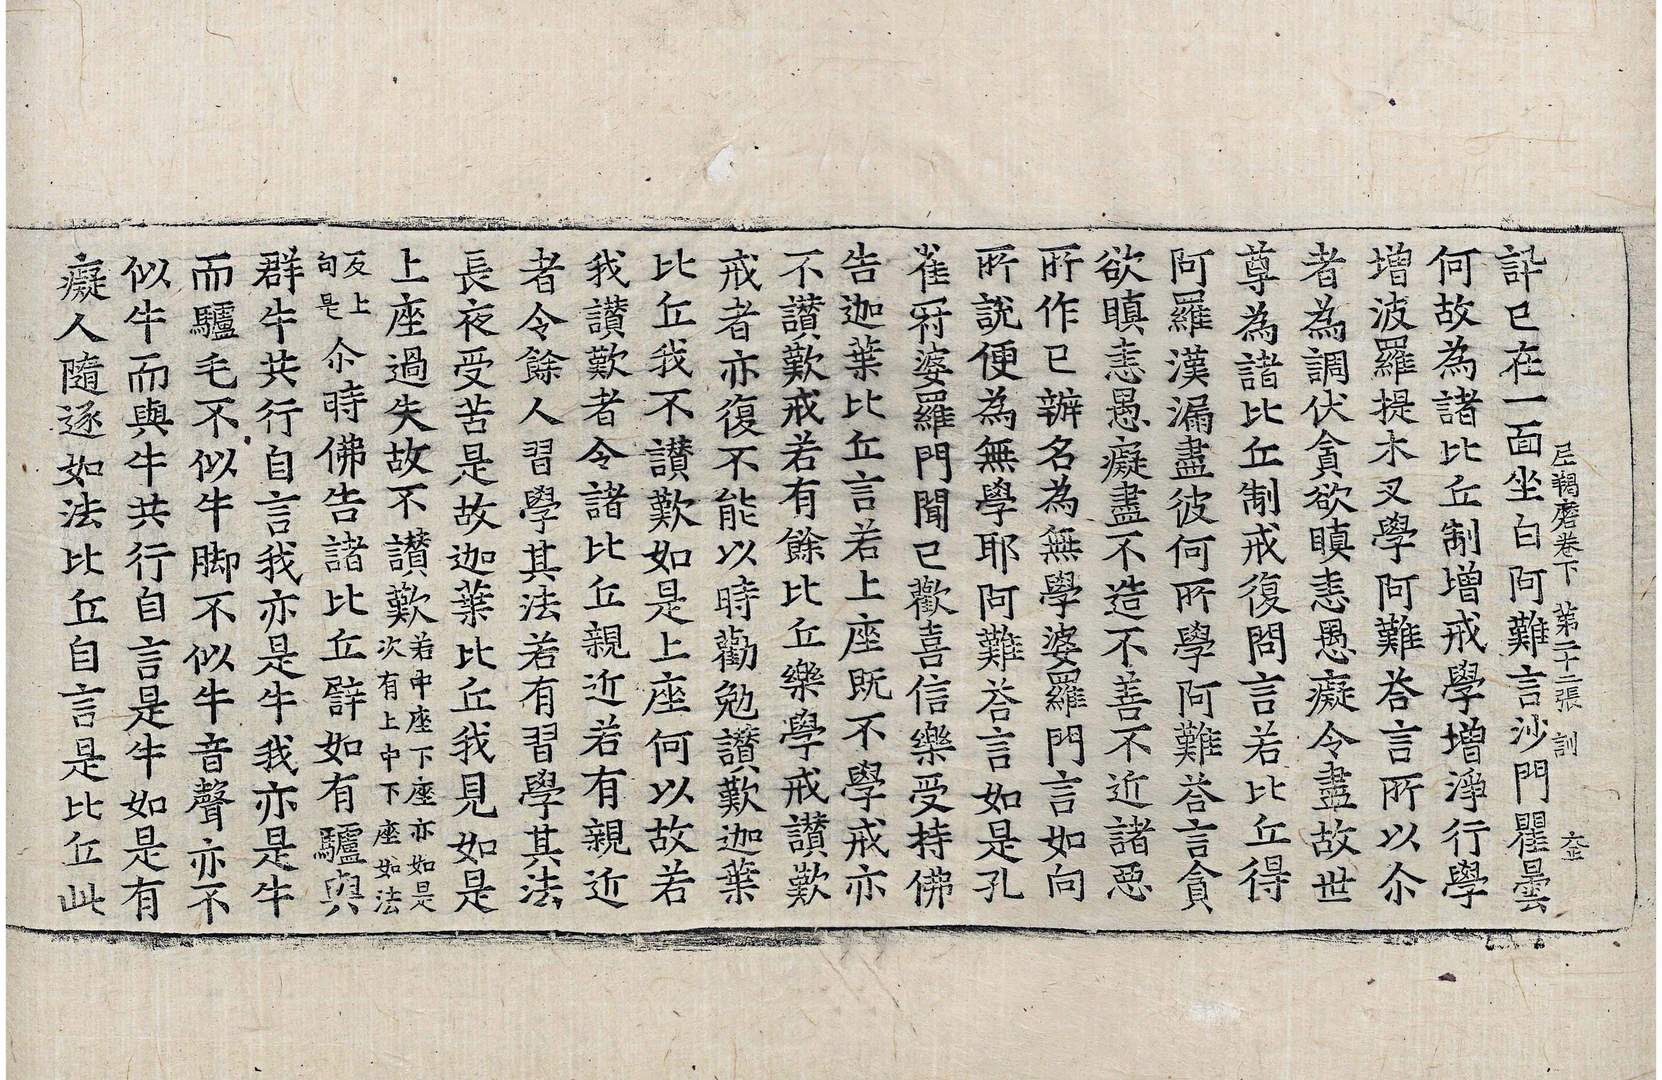 尼羯磨卷下　第二十二張　訓　𡘋
訊已在一面坐白阿難言沙門瞿曇
何故為諸比丘制增戒學增淨行學
增波羅提木叉學阿難荅言所以尒
者為調伏貪欲瞋恚愚癡令盡故世
尊為諸比丘制戒復問言若比丘得
阿羅漢漏盡彼何所學阿難荅言貪
欲瞋恚愚癡盡不造不善不近諸惡
所作已辦名為無學婆羅門言如向
所說便為無學耶阿難荅言如是孔
雀冠婆羅門聞已歡喜信樂受持佛
告迦葉比丘言若上座既不學戒亦
不讃歎戒若有餘比丘樂學戒讃歎
戒者亦復不能以時勸勉讃歎迦葉
比丘我不讃歎如是上座何以故若
我讃歎者令諸比丘親近若有親近
者令餘人習學其法若有習學其法
長夜受苦是故迦葉比丘我見如是
上座過失故不讃歎若中座下座亦如是次有上中下座如法
反上句是尒時佛告諸比丘譬如有驢與
群牛共行自言我亦是牛我亦是牛
而驢毛不似牛脚不似牛音聲亦不
似牛而與牛共行自言是牛如是有
癡人隨逐如法比丘自言是比丘此